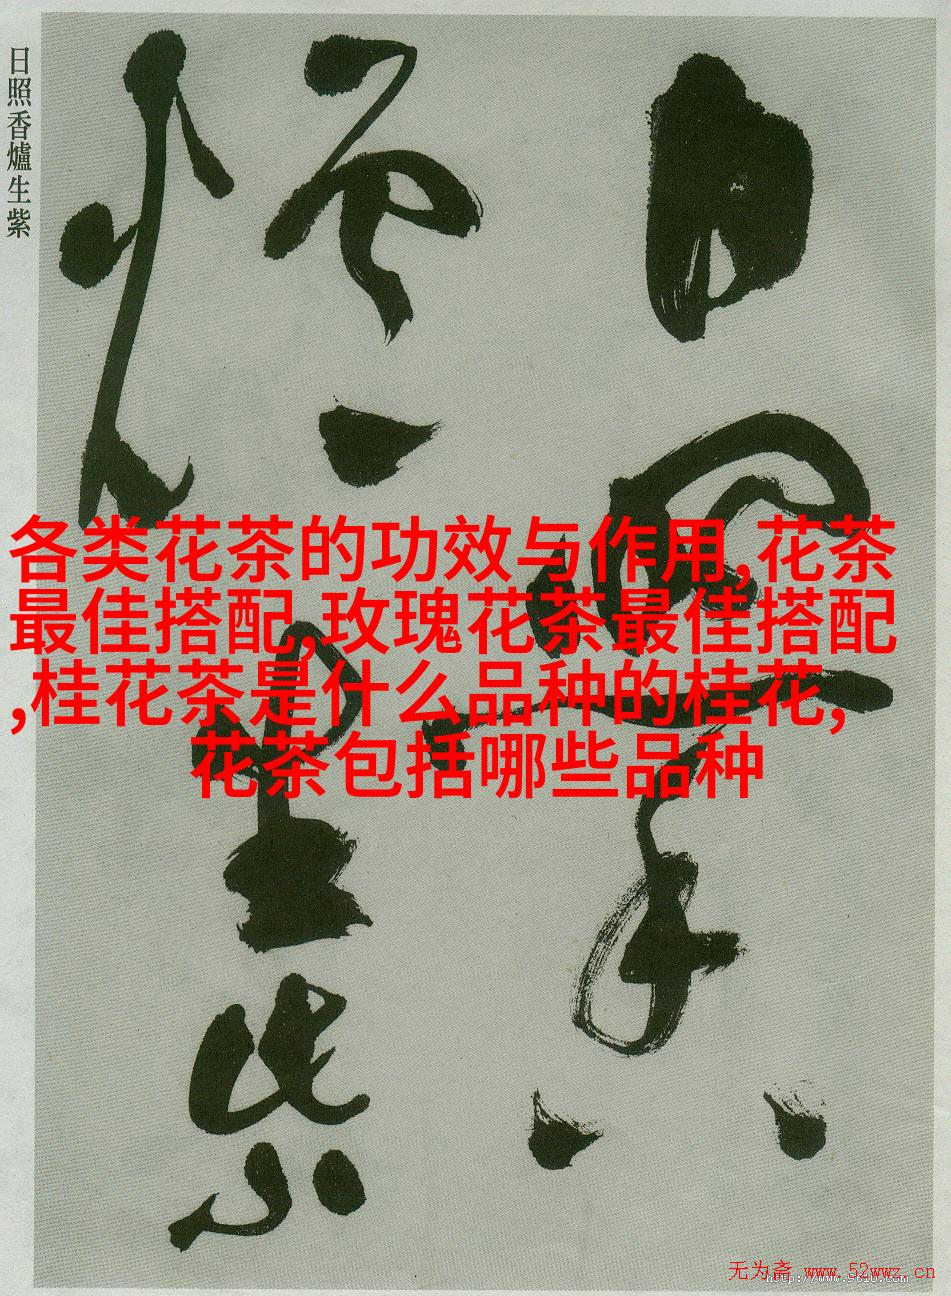 日照香爐生紫
日照香
爐生紫
各类花茶的功效与作用,花茶
最佳搭配,玫瑰花茶最佳搭配
,桂花茶是什么品种的桂花,
花茶包括哪些品种
无为斋 www.52wwz.cn
http://www.9610.com